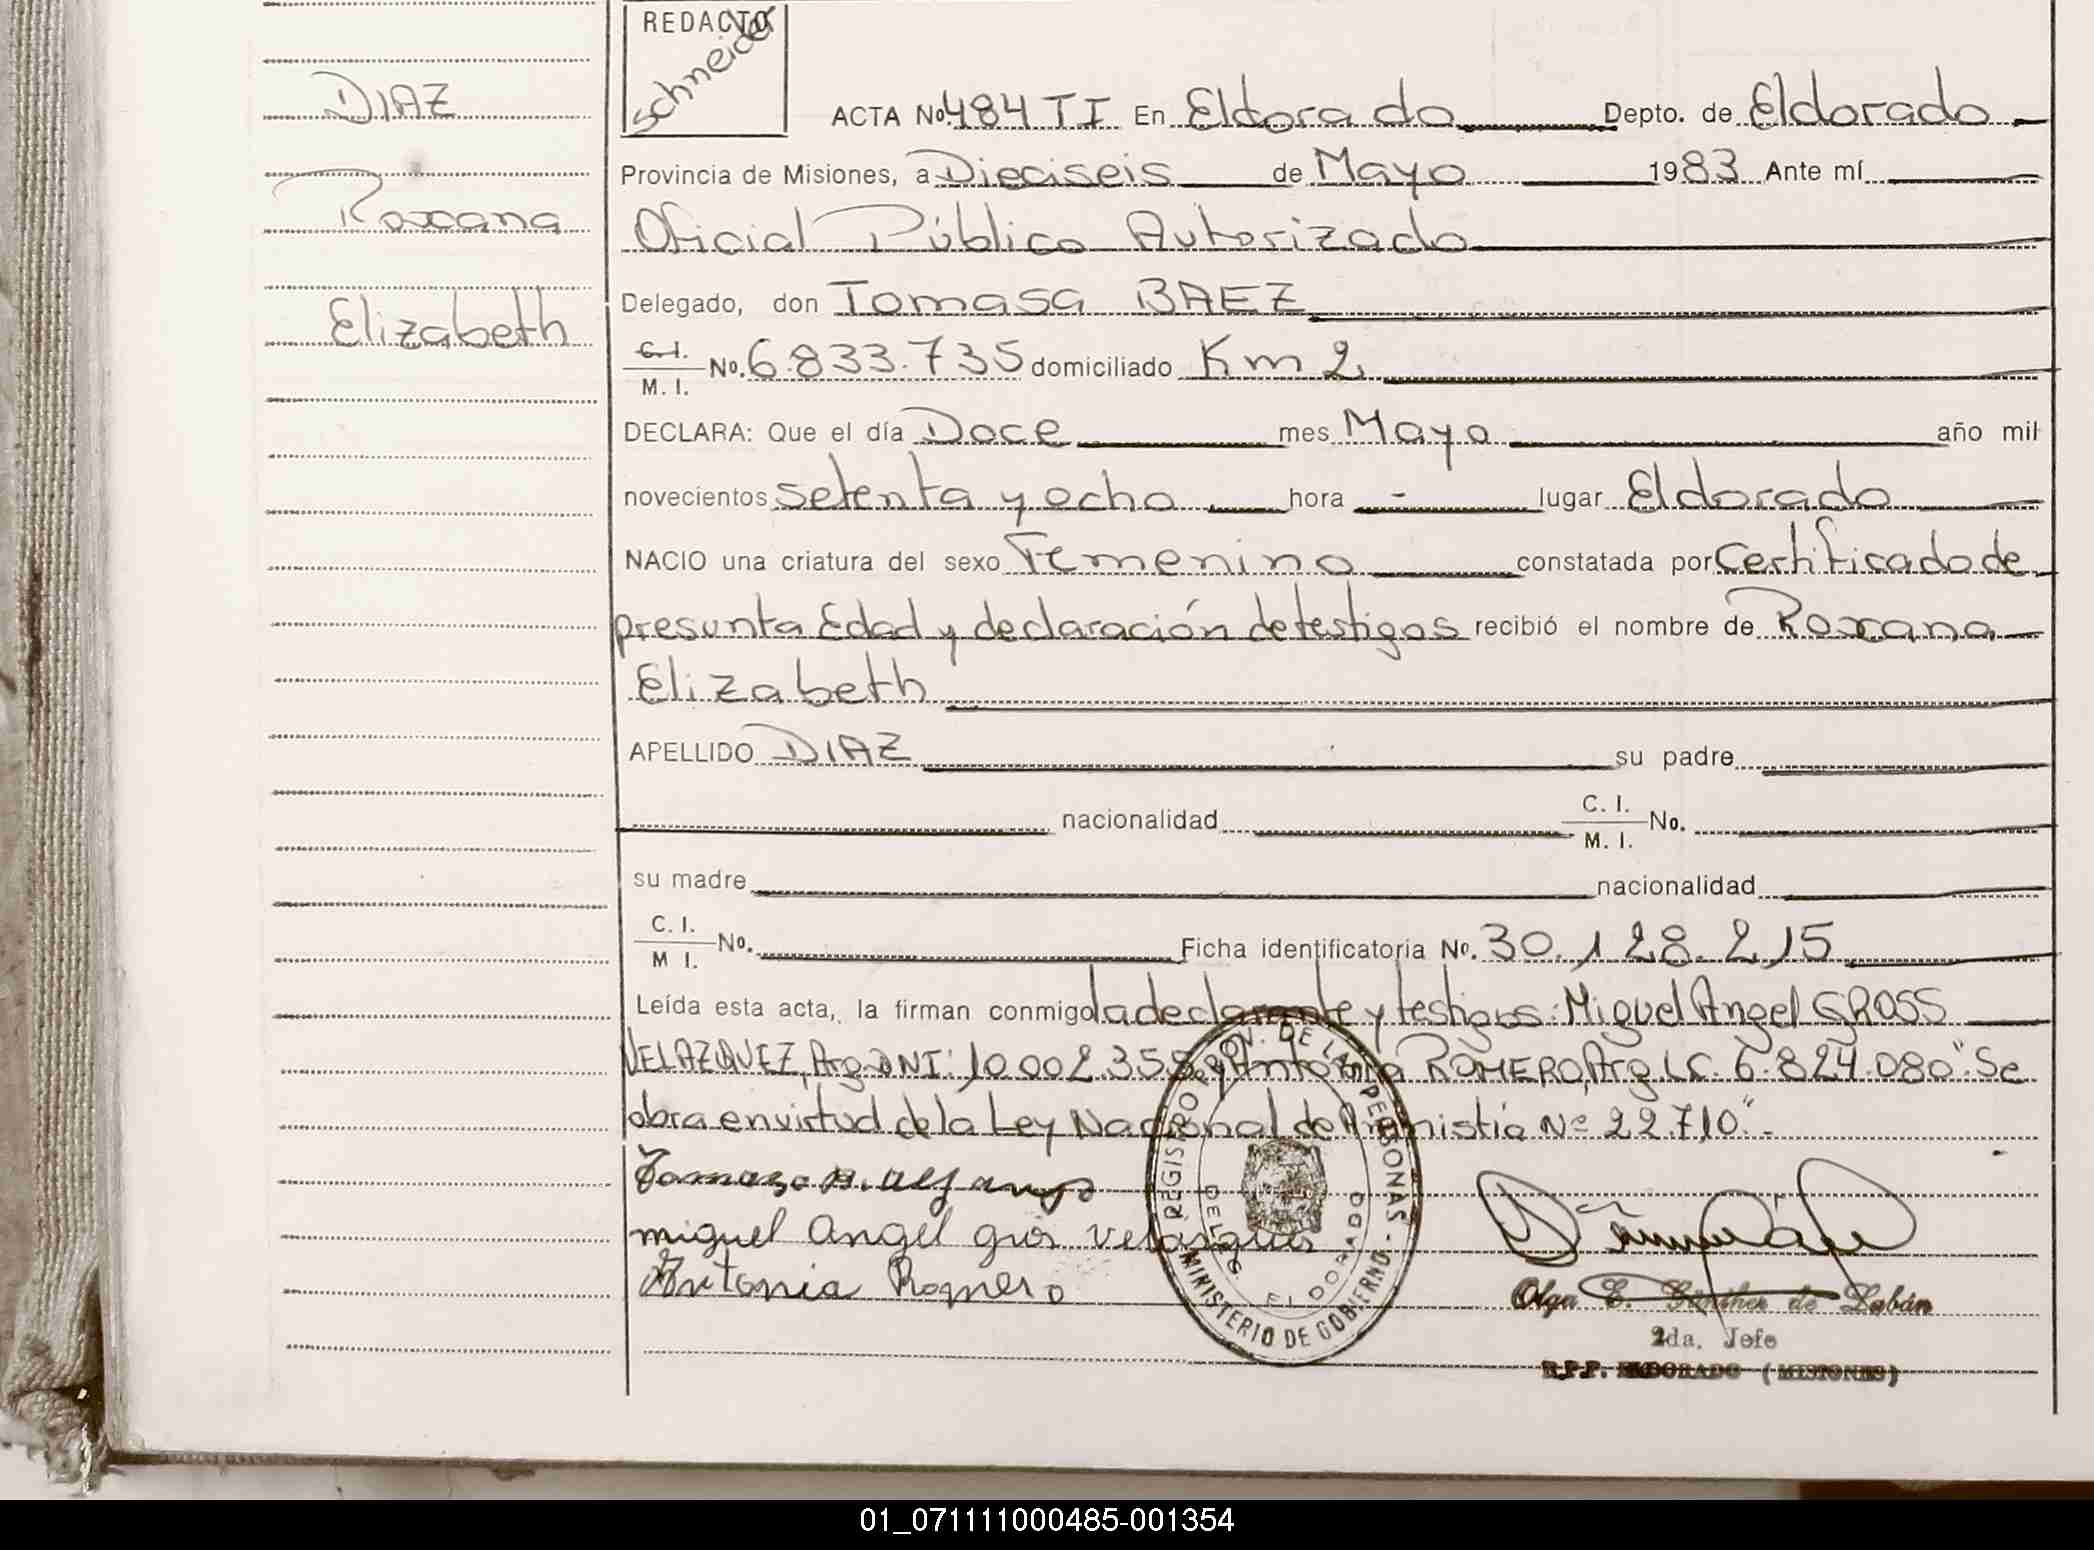 REDACTO
Schneider
DIAZ
Roxana
Elizabeth
ACTA No. 484 TI En Eldorado Depto. de Eldorado
Provincia de Misiones, a Dieciseis de Mayo 1983 Ante mí
Oficial Público Autorizado
Delegado, don Tomasa BAEZ
C. I.
M. I.
No. 6.833.735 domiciliado Km 2,
DECLARA: Que el día Doce mes Mayo año mil
novecientos setenta y ocho hora - lugar Eldorado
NACIO una criatura del sexo Femenino constatada por Certificado de
presunta Edad y declaración de testigos recibió el nombre de Roxana
Elizabeth
APELLIDO DIAZ su padre
nacionalidad C. I. M. I. No.
su madre nacionalidad
C. I. M I. No. Ficha identificatoria No. 30.128.215
Leída esta acta, la firman conmigo la declarante y testigos: Miguel Angel GROSS
VELAZQUEZ, Arg. DNI: 10.002.358 y Antonia ROMERO, Arg. LC. 6.824.080" Se
obra en virtud de la Ley Nacional de Amnistía Nº 22.710".-
miguel Angel gros velasques
Antonia Romero
REGISTRO PROV. DE LAS PERSONAS - MINISTERIO DE GOBIERNO
DELEG. ELDORADO
Olga E. Günther de Labán
2da. Jefe
R.P.P. ELDORADO (MISIONES)
01_071111000485-001354